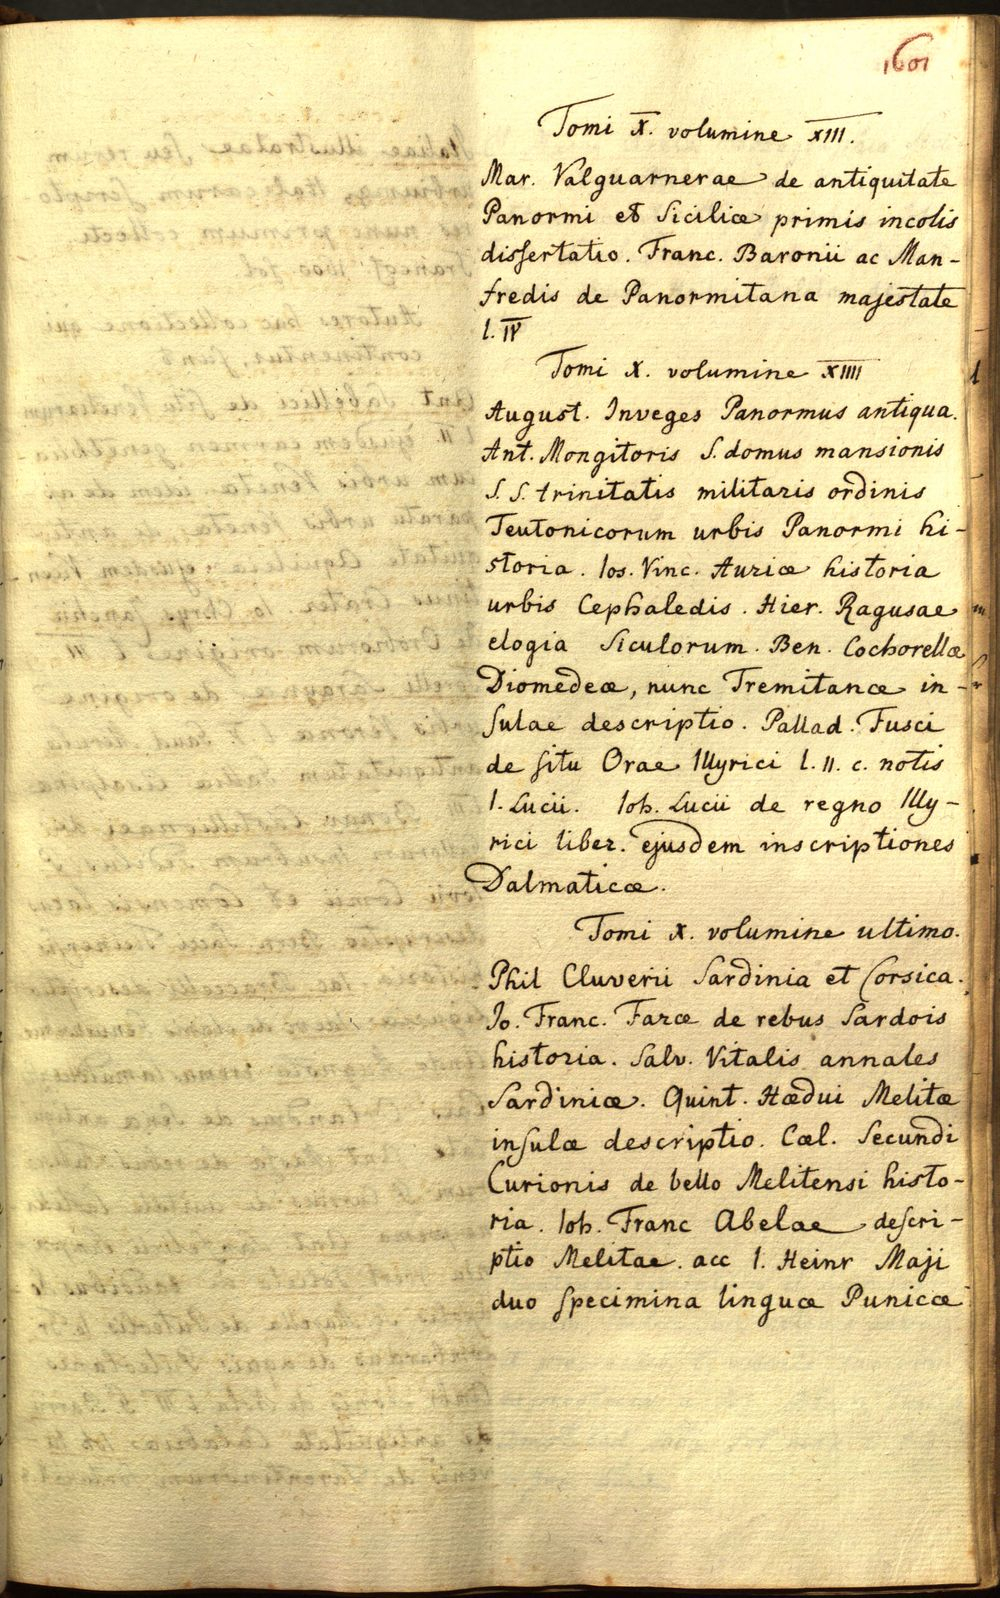 1601
Tomi X. volumine XIII.
Mar. Valguarnerae de antiquitate
Panormi et Siciliæ primis incolis
dissertatio. Franc. Baronii ac Man-
fredis de Panormitana majestate
l. IV
Tomi X. volumine XIIII
August. Inveges Panormus antiqua.
Ant. Mongitoris S. domus mansionis
S. S. trinitatis militaris ordinis
Teutonicorum urbis Panormi hi-
storia. Ios. Vinc. Auriæ historia
urbis Cephaledis. Hier. Ragusae
elogia Siculorum. Ben. Cochorellæ
Diomedeæ, nunc Tremitanæ in-
sulae descriptio. Pallad. Fusci
de situ Orae Illyrici l. II. c. notis
I. Lucii. Ioh. Lucii de regno Illy-
rici liber. ejusdem inscriptiones
Dalmaticæ.
Tomi X. volumine ultimo.
Phil Cluverii Sardinia et Corsica.
Jo. Franc. Faræ de rebus Sardois
historia. Salv. Vitalis annales
Sardiniæ. Quint. Hædui Melitæ
insulæ descriptio. Cæl. Secundi
Curionis de bello Melitensi histo-
ria. Ioh. Franc Abelae descri-
ptio Melitae. acc I. Heinr Maji
duo specimina linguæ Punicæ